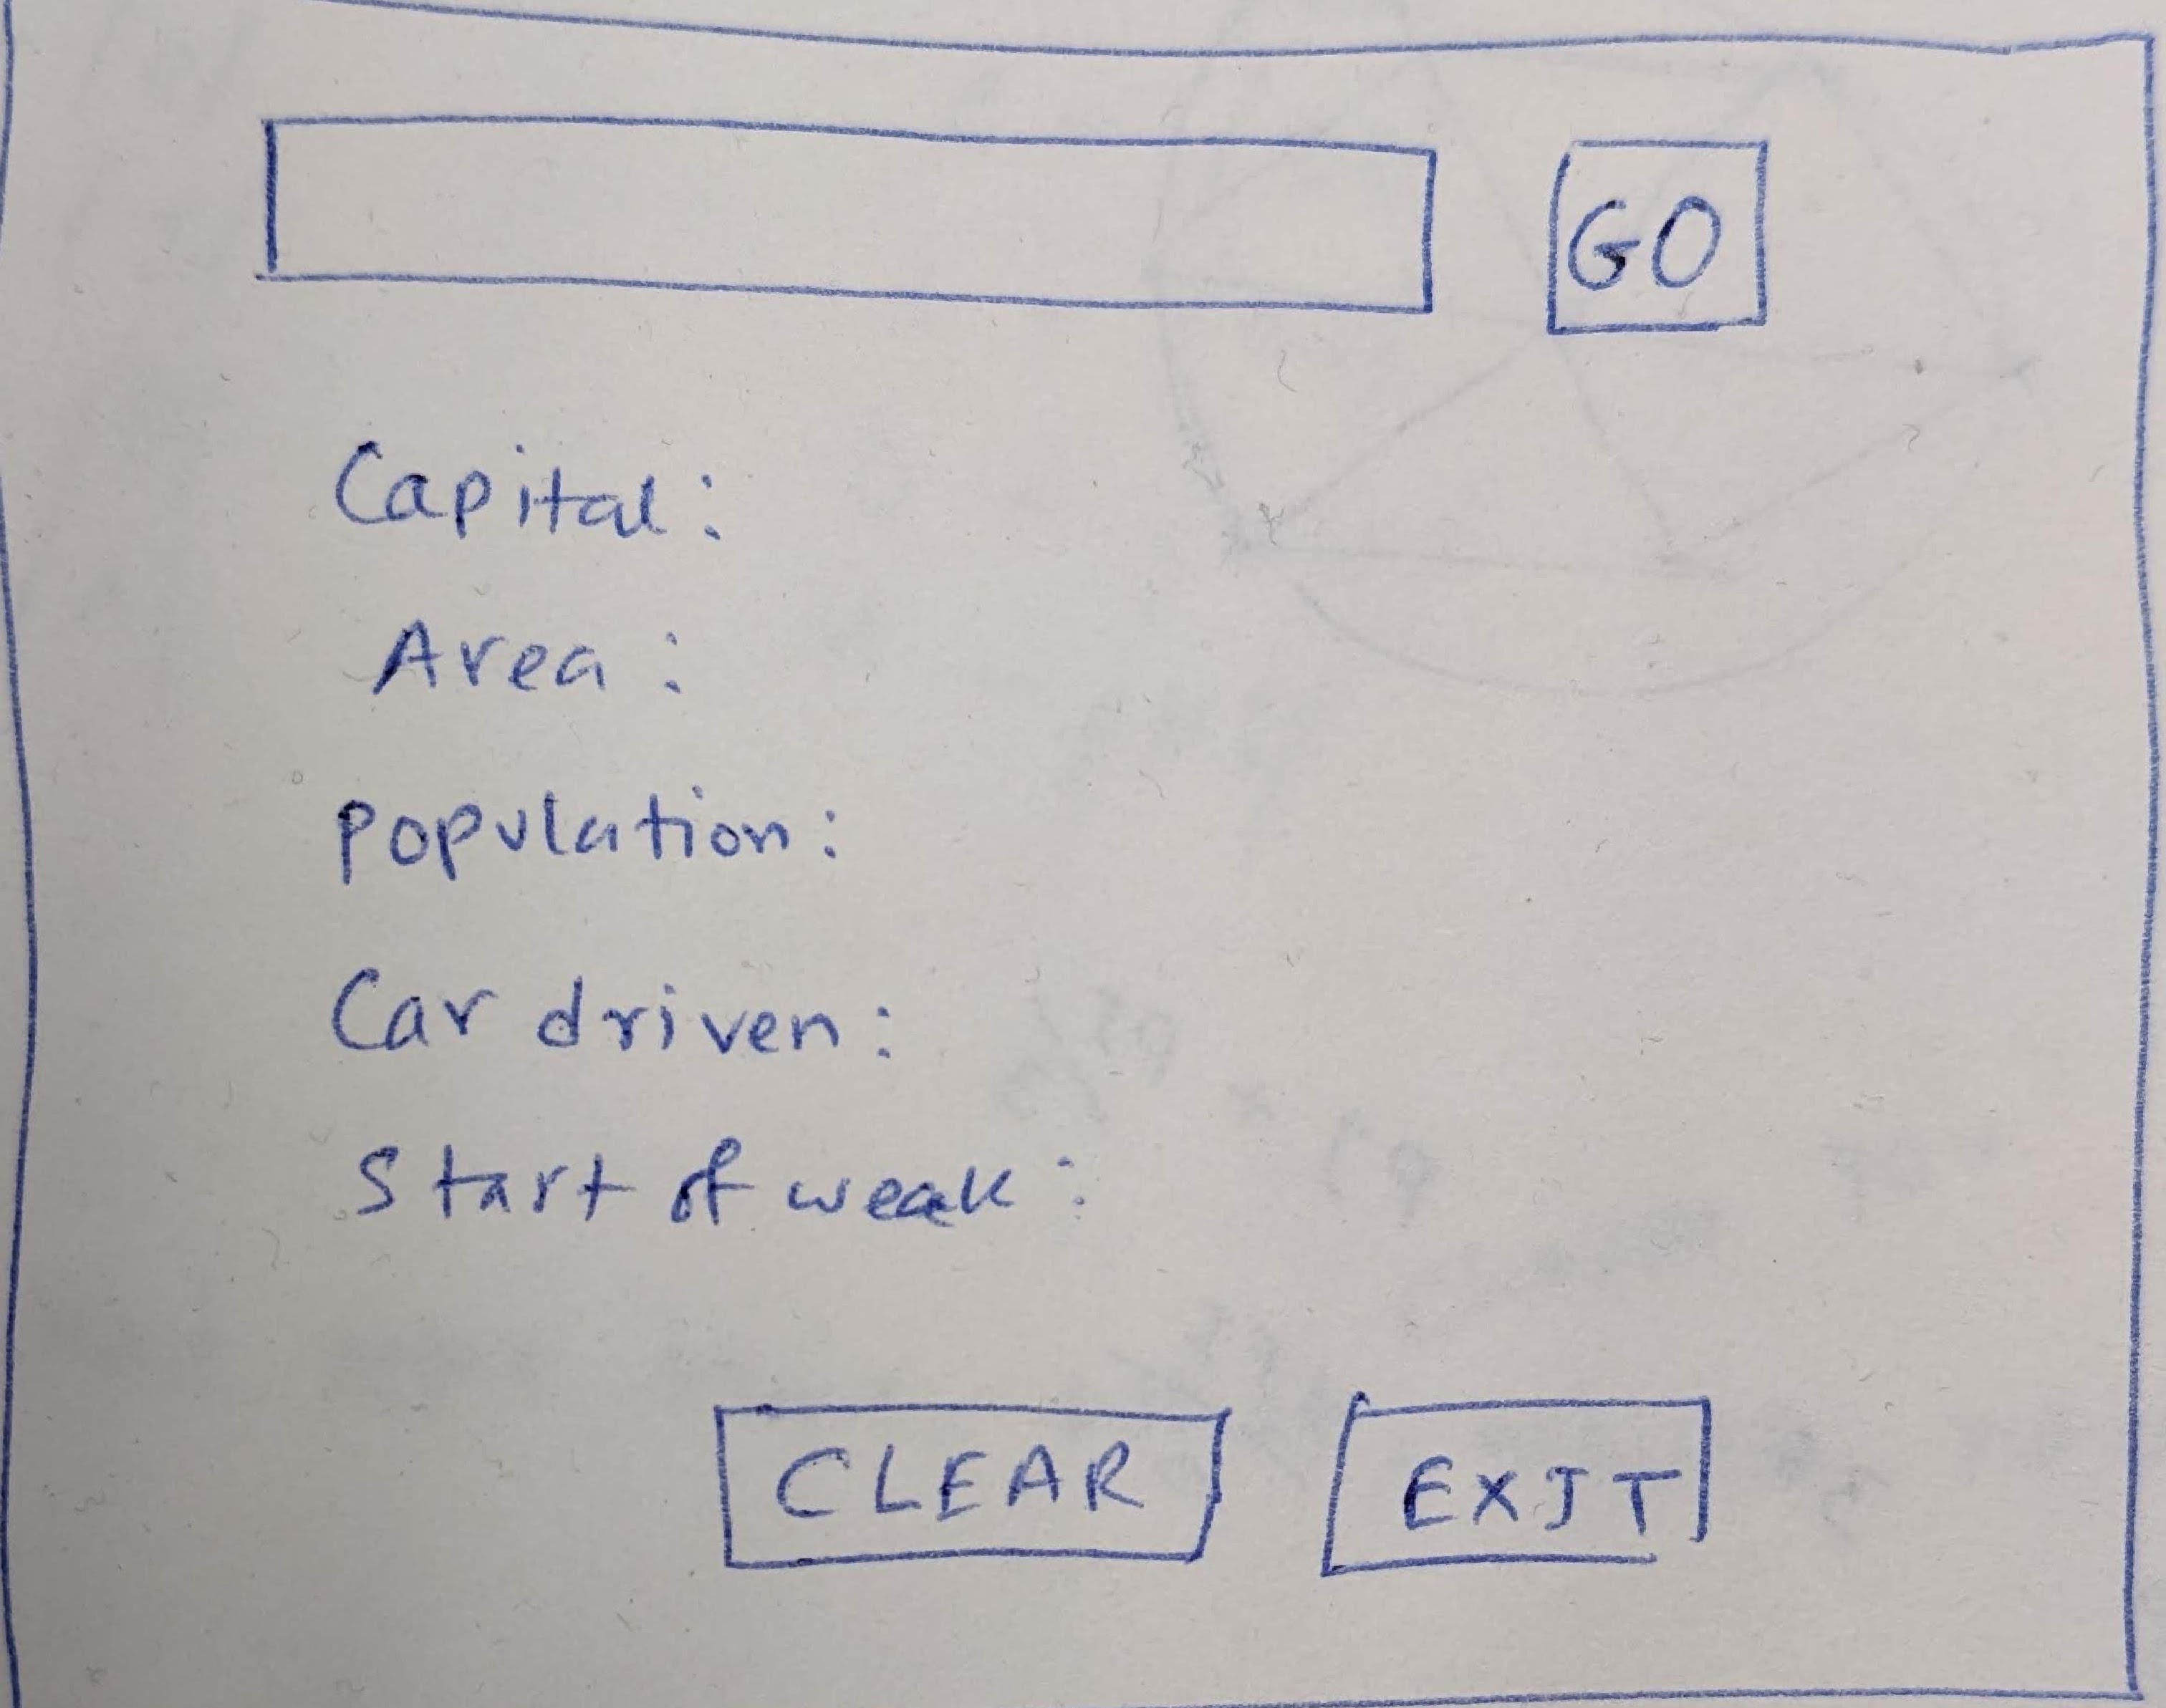 GO
Capital:
Area:
Population:
Car driven:
Start of weak:
CLEAR
EXIT